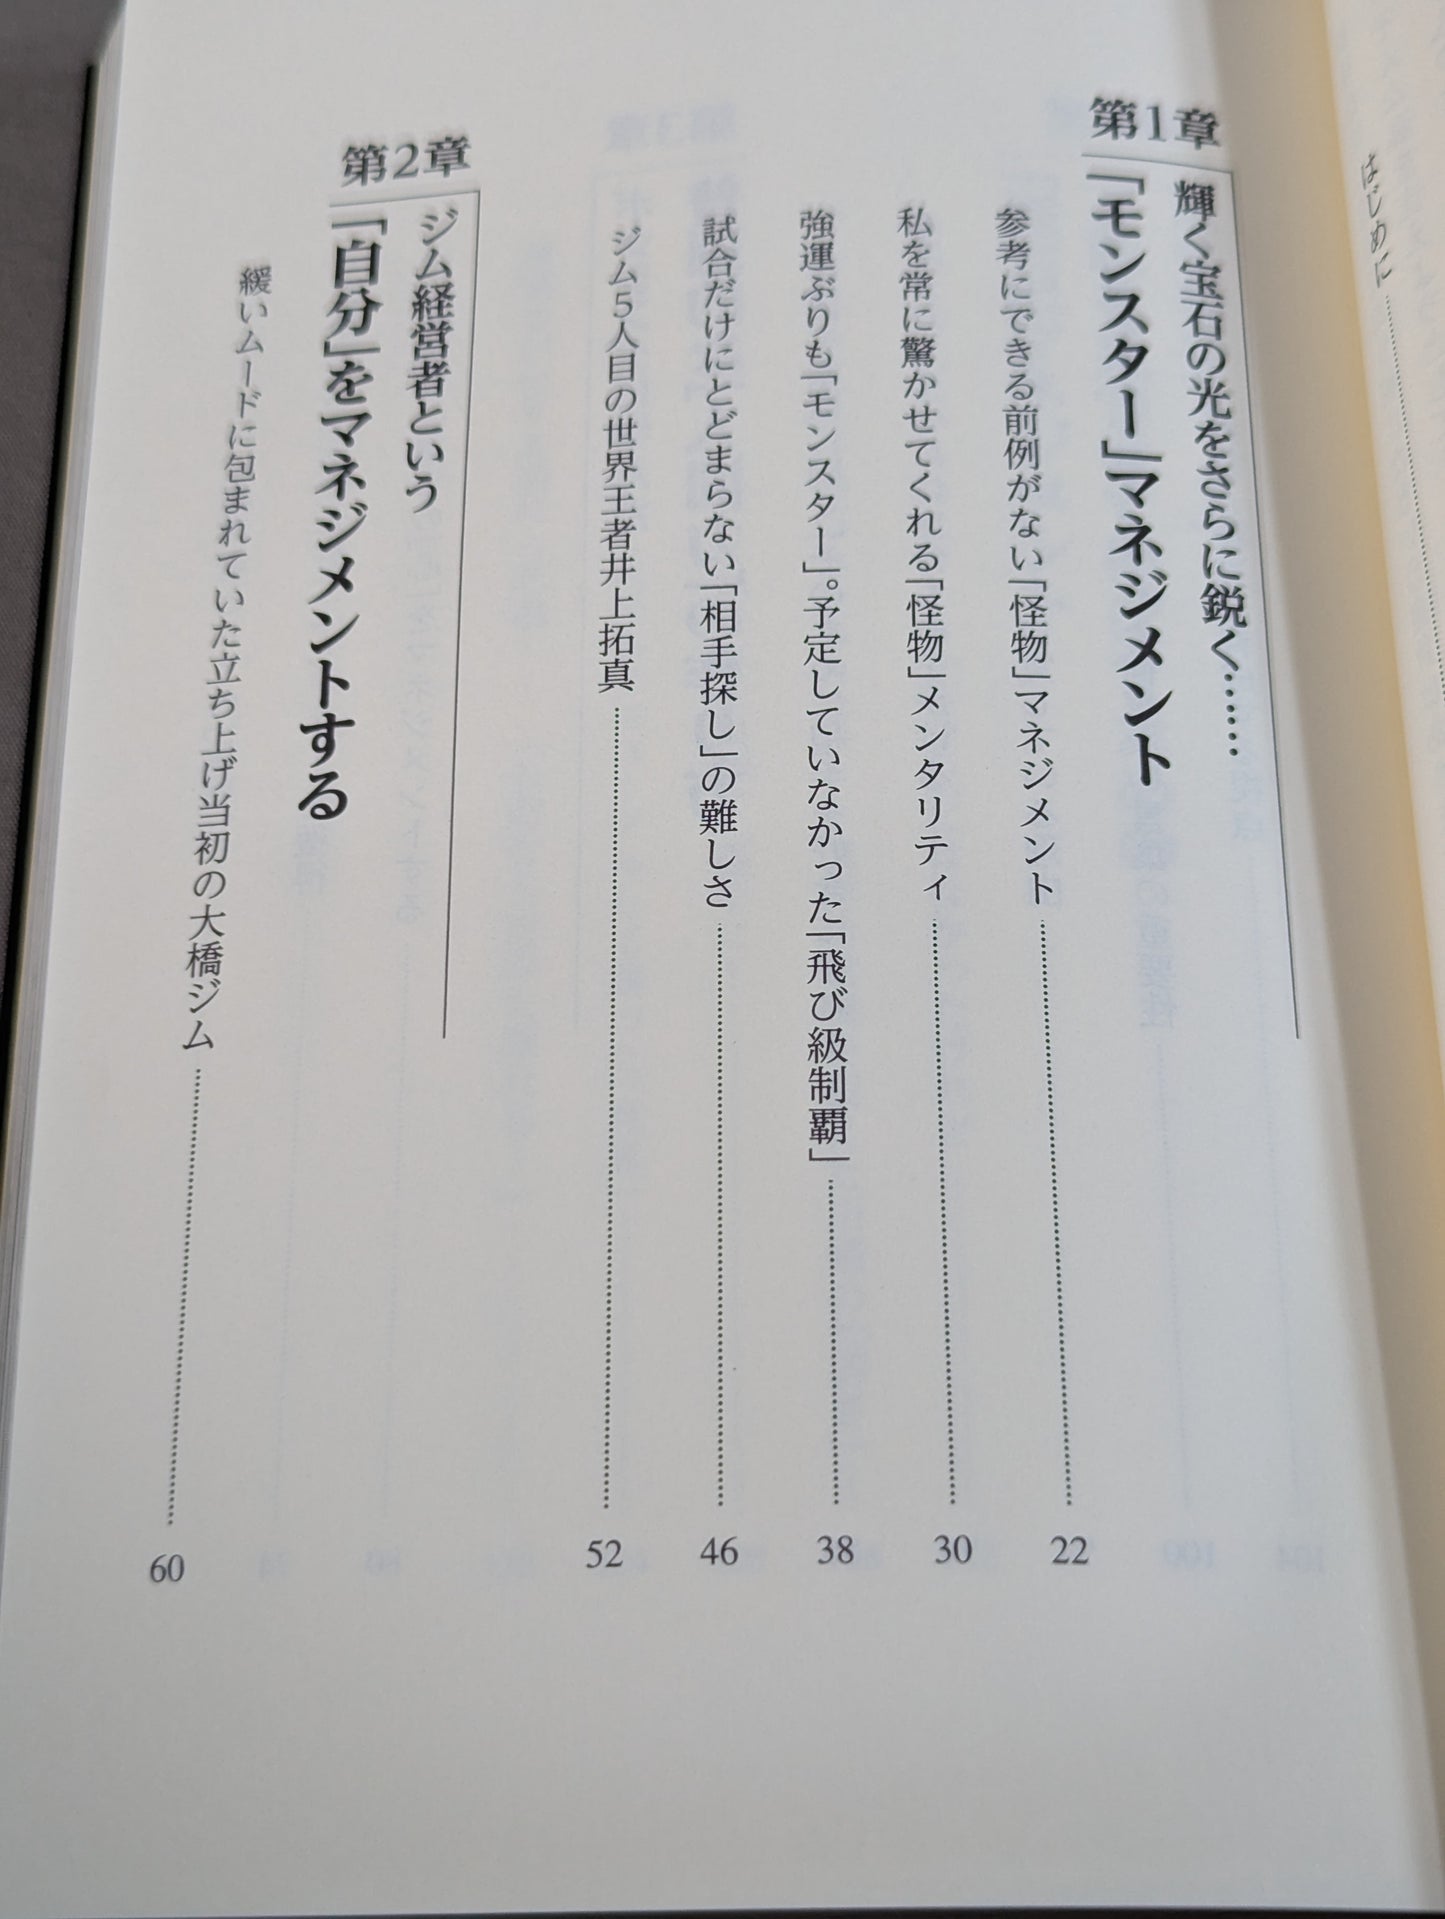 はじめに
第1章
輝く宝石の光をさらに鋭く……
「モンスター」マネジメント
参考にできる前例がない「怪物」マネジメント 22
私を常に驚かせてくれる「怪物」メンタリティ 30
強運ぶりも「モンスター」。予定していなかった「飛び級制覇」 38
試合だけにとどまらない「相手探し」の難しさ 46
ジム5人目の世界王者井上拓真 52
第2章
ジム経営者という
「自分」をマネジメントする
緩いムードに包まれていた立ち上げ当初の大橋ジム 60